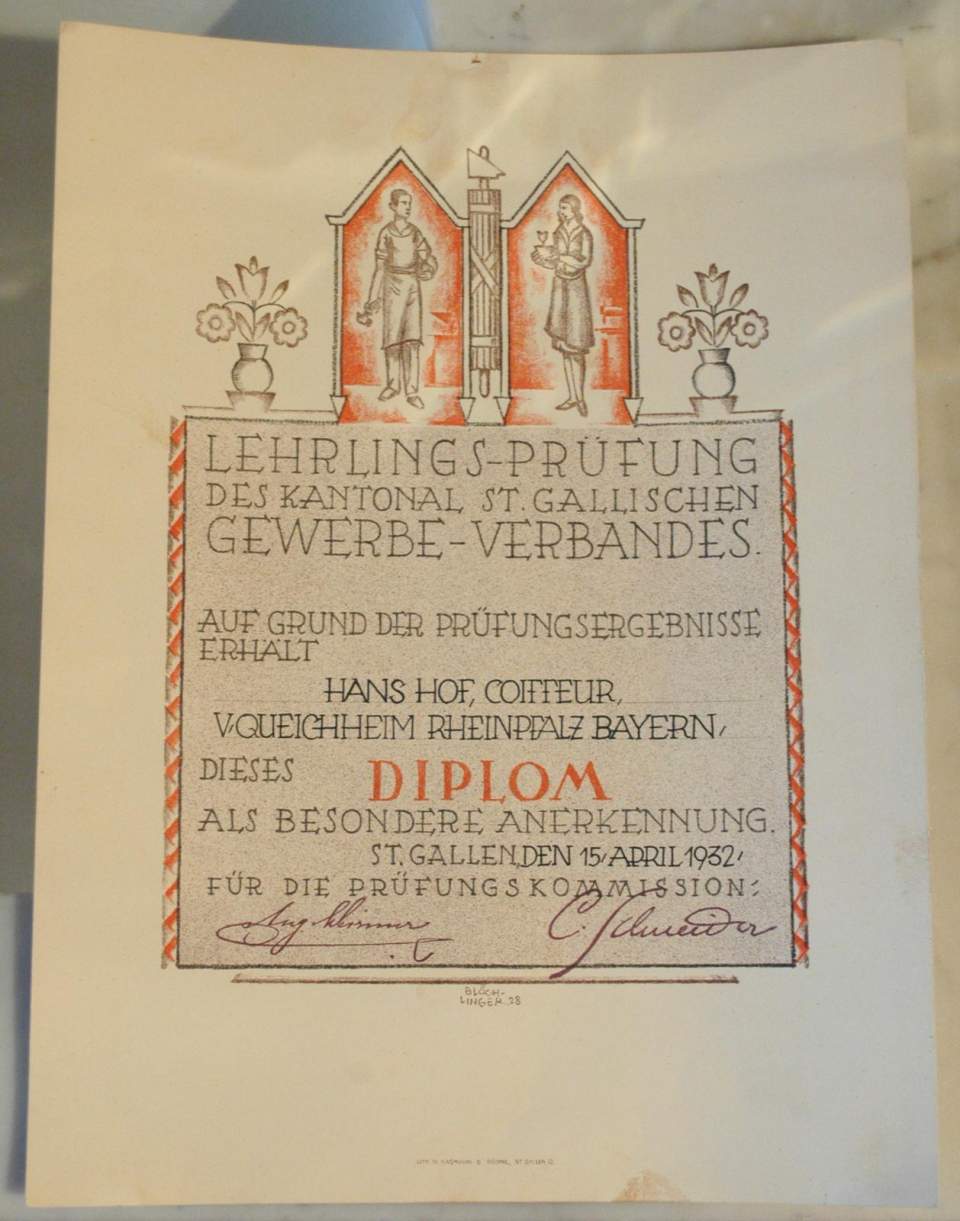 LEHRLINGS-PRÜFUNG
DES KANTONAL ST. GALLISCHEN
GEWERBE-VERBANDES.
AUF GRUND DER PRÜFUNGSERGEBNISSE
ERHÄLT
HANS HOF, COIFFEUR,
V. QUEICHHEIM RHEINPFALZ BAYERN,
DIESES DIPLOM
ALS BESONDERE ANERKENNUNG.
ST. GALLEN, DEN 15. APRIL 1932.
FÜR DIE PRÜFUNGSKOMMISSION:
C. Schneider
BLÖCH-
LINGER. 28